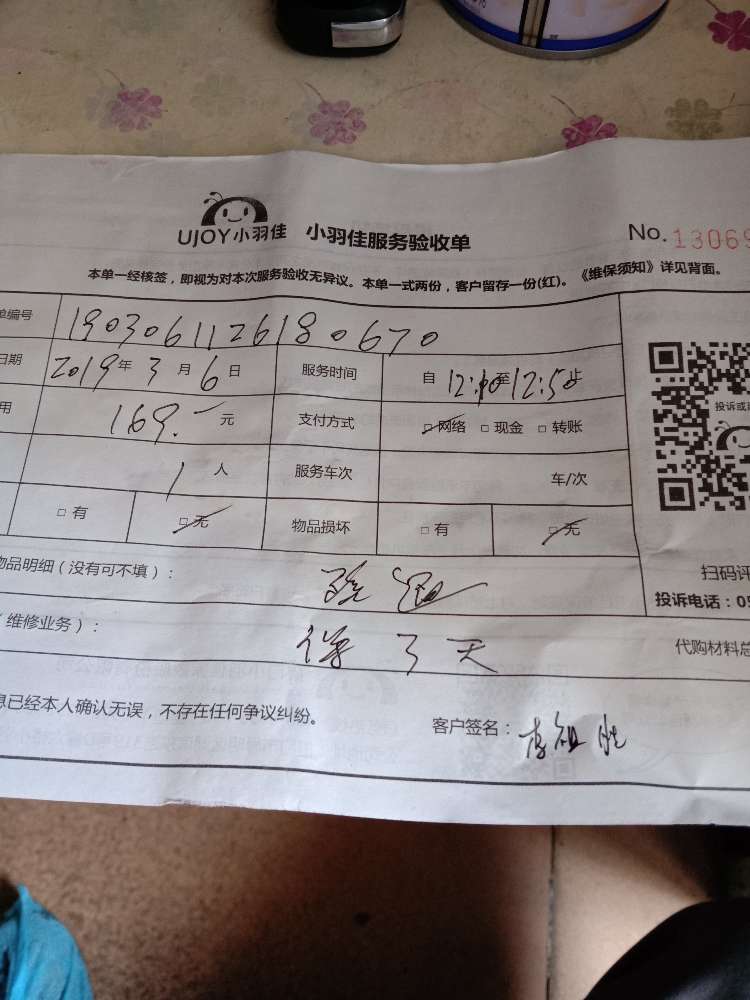 UJOY小羽佳 小羽佳服务验收单 No. 13069
本单一经核签，即视为对本次服务验收无异议。本单一式两份，客户留存一份(红)。《维保须知》详见背面。
单编号 1903061126180670
日期 2019年3月6日 服务时间 自12:10至12:50止
用 169.- 元 支付方式 □网络 □现金 □转账
投诉或
1人 服务车次 车/次
□有 □无 物品损坏 □有 □无
扫码评
物品明细（没有可不填）：
投诉电话：05
（维修业务）： 保 3 天
代购材料总
息已经本人确认无误，不存在任何争议纠纷。 客户签名：李祖胜